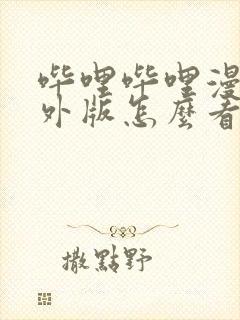 哔哩哔哩漫
外版怎麼看
撒點野